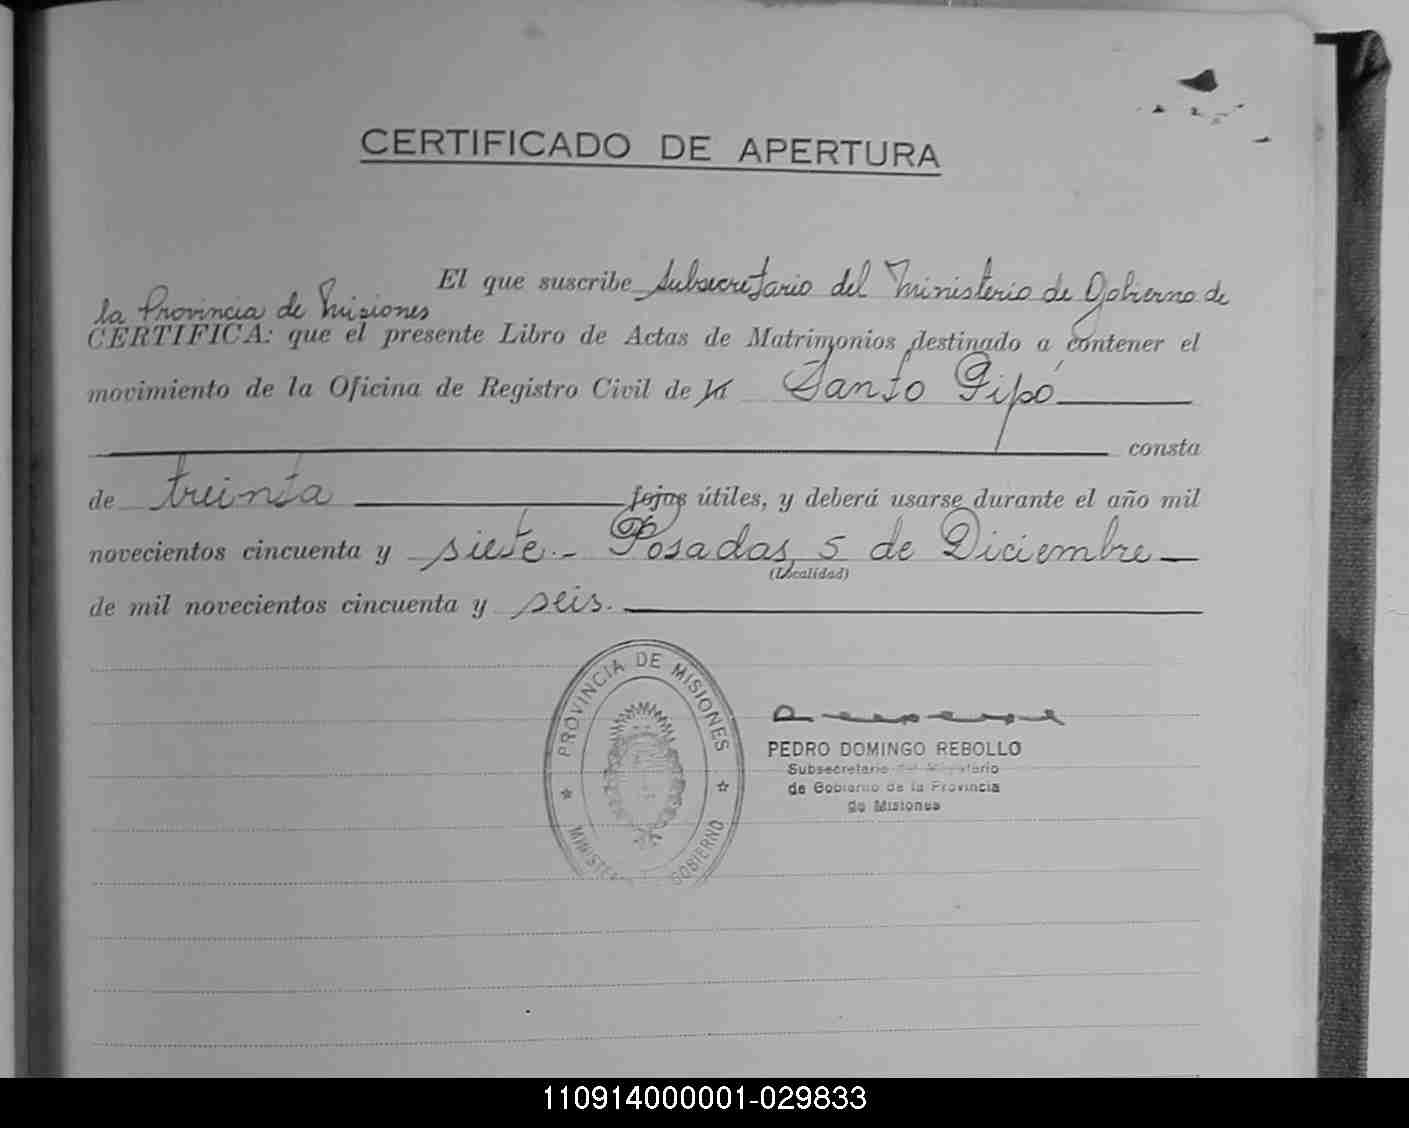 CERTIFICADO DE APERTURA
El que suscribe Subsecretario del Ministerio de Gobierno de
la Provincia de Misiones
CERTIFICA: que el presente Libro de Actas de Matrimonios destinado a contener el
movimiento de la Oficina de Registro Civil de la Santo Pipó
consta
de treinta fojas útiles, y deberá usarse durante el año mil
novecientos cincuenta y siete.- Posadas, 5 de Diciembre
(Localidad)
de mil novecientos cincuenta y seis.
PROVINCIA DE MISIONES
MINISTE GOBIERNO
PEDRO DOMINGO REBOLLO
Subsecretario del Ministerio
de Gobierno de la Provincia
de Misiones
110914000001-029833